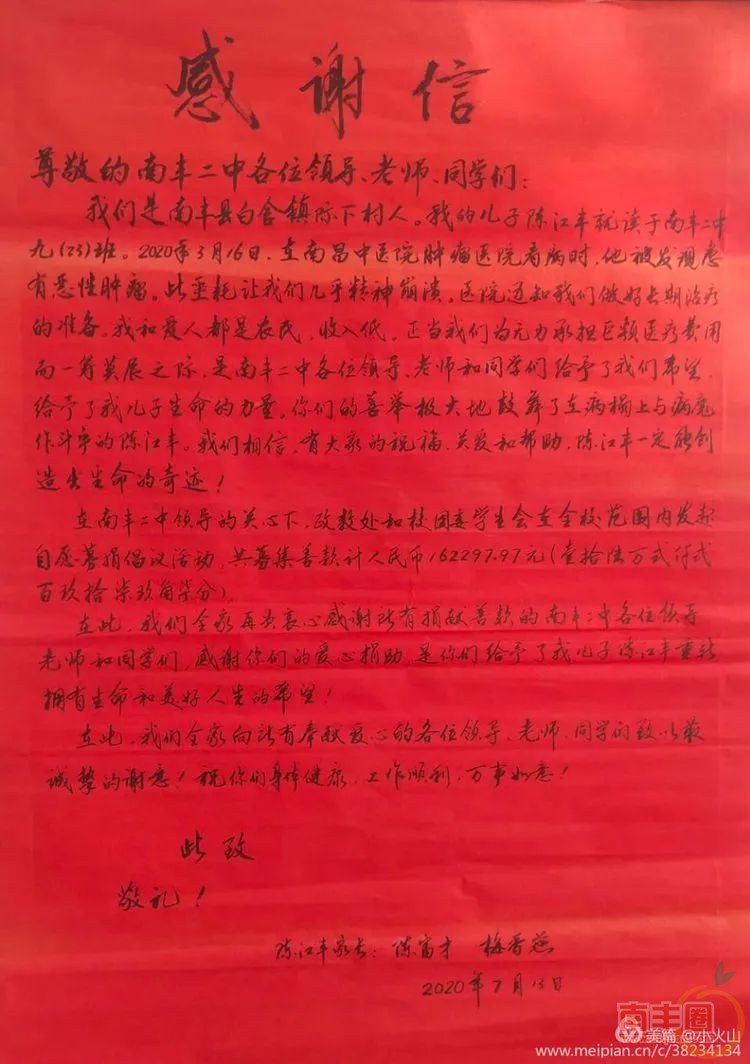 感谢信
尊敬的南丰二中各位领导、老师、同学们：
我们是南丰县白舍镇际下村人。我的儿子陈江丰就读于南丰二中
九(23)班。2020年3月16日，在南昌中医院肿瘤医院看病时，他被发现患
有恶性肿瘤。此噩耗让我们几乎精神崩溃。医院通知我们做好长期治疗
的准备。我和爱人都是农民，收入低。正当我们为无力承担巨额医疗费用
而一筹莫展之际，是南丰二中各位领导、老师和同学们给予了我们希望，
给予了我儿子生命的力量。你们的善举极大地鼓舞了在病榻上与病魔
作斗争的陈江丰。我们相信，有大家的祝福、关爱和帮助，陈江丰一定能创
造出生命的奇迹！
在南丰二中领导的关心下，政教处和校团委学生会在全校范围内发起
自愿募捐倡议活动，共募集善款计人民币162297.97元(壹拾陆万贰仟贰
百玖拾柒玖角柒分)。
在此，我们全家再次衷心感谢所有捐献善款的南丰二中各位领导
老师和同学们，感谢你们的爱心捐助，是你们给予了我儿子陈江丰重新
拥有生命和美好人生的希望！
在此，我们全家向所有奉献爱心的各位领导、老师、同学们致以最
诚挚的谢意！祝你们身体健康，工作顺利，万事如意！
此致
敬礼！
陈江丰家长：陈富才 梅香燕
2020年7月13日
南丰圈
美篇 @小火山
www.meipian.cn/c/38234134